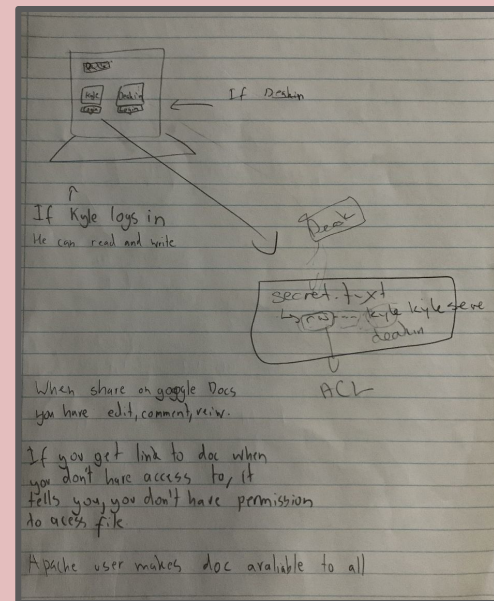 Kyle Deakin
login login
If Deakin
If Kyle logs in
He can read and write
Deak
secret.txt
rw--- kyle kyle
deakin
ACL
When share on google Docs
you have edit, comment, veiw.
If you get link to doc when
you don't have access to, it
tells you, you don't have permission
to acess file.
Apache user makes doc avaliable to all